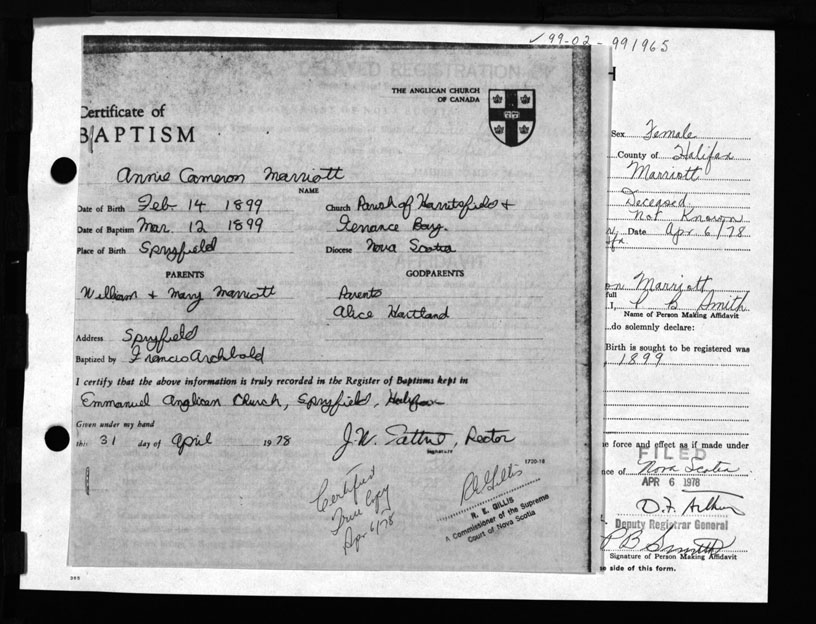 99-02-991965
DELAYED REGISTRATION OF
THE ANGLICAN CHURCH
OF CANADA
Certificate of
BAPTISM
Annie Cameron Marriott
NAME
Date of Birth Feb. 14 1899
Church Parish of Harrietsfield +
Date of Baptism Mar. 12 1899
Terrance Bay.
Place of Birth Spryfield
Diocese Nova Scotia
PARENTS
GODPARENTS
William + Mary Marriott
Parents
Alice Hartland
Address Spryfield
Baptized by Francis Archbold
I certify that the above information is truly recorded in the Register of Baptisms kept in
Emmanuel Anglican Church, Spryfield, Halifax
Given under my hand
this 31 day of April 1978
J. W. Rector
signature
1720-18
Certified
True Copy
Apr 6/78
R E Gillis
R. E. GILLIS
A Commissioner of the Supreme
Court of Nova Scotia
H
Sex Female
County of Halifax
Marriott
Deceased
Not Known
Date Apr 6/78
on Marriott
full
I, P B Smith
Name of Person Making Affidavit
do solemnly declare:
Birth is sought to be registered was
, 1899
e force and effect as if made under
FILED
nce of Nova Scotia
APR 6 1978
D. F. Arthur
Deputy Registrar General
P B Smith
Signature of Person Making Affidavit
e side of this form.